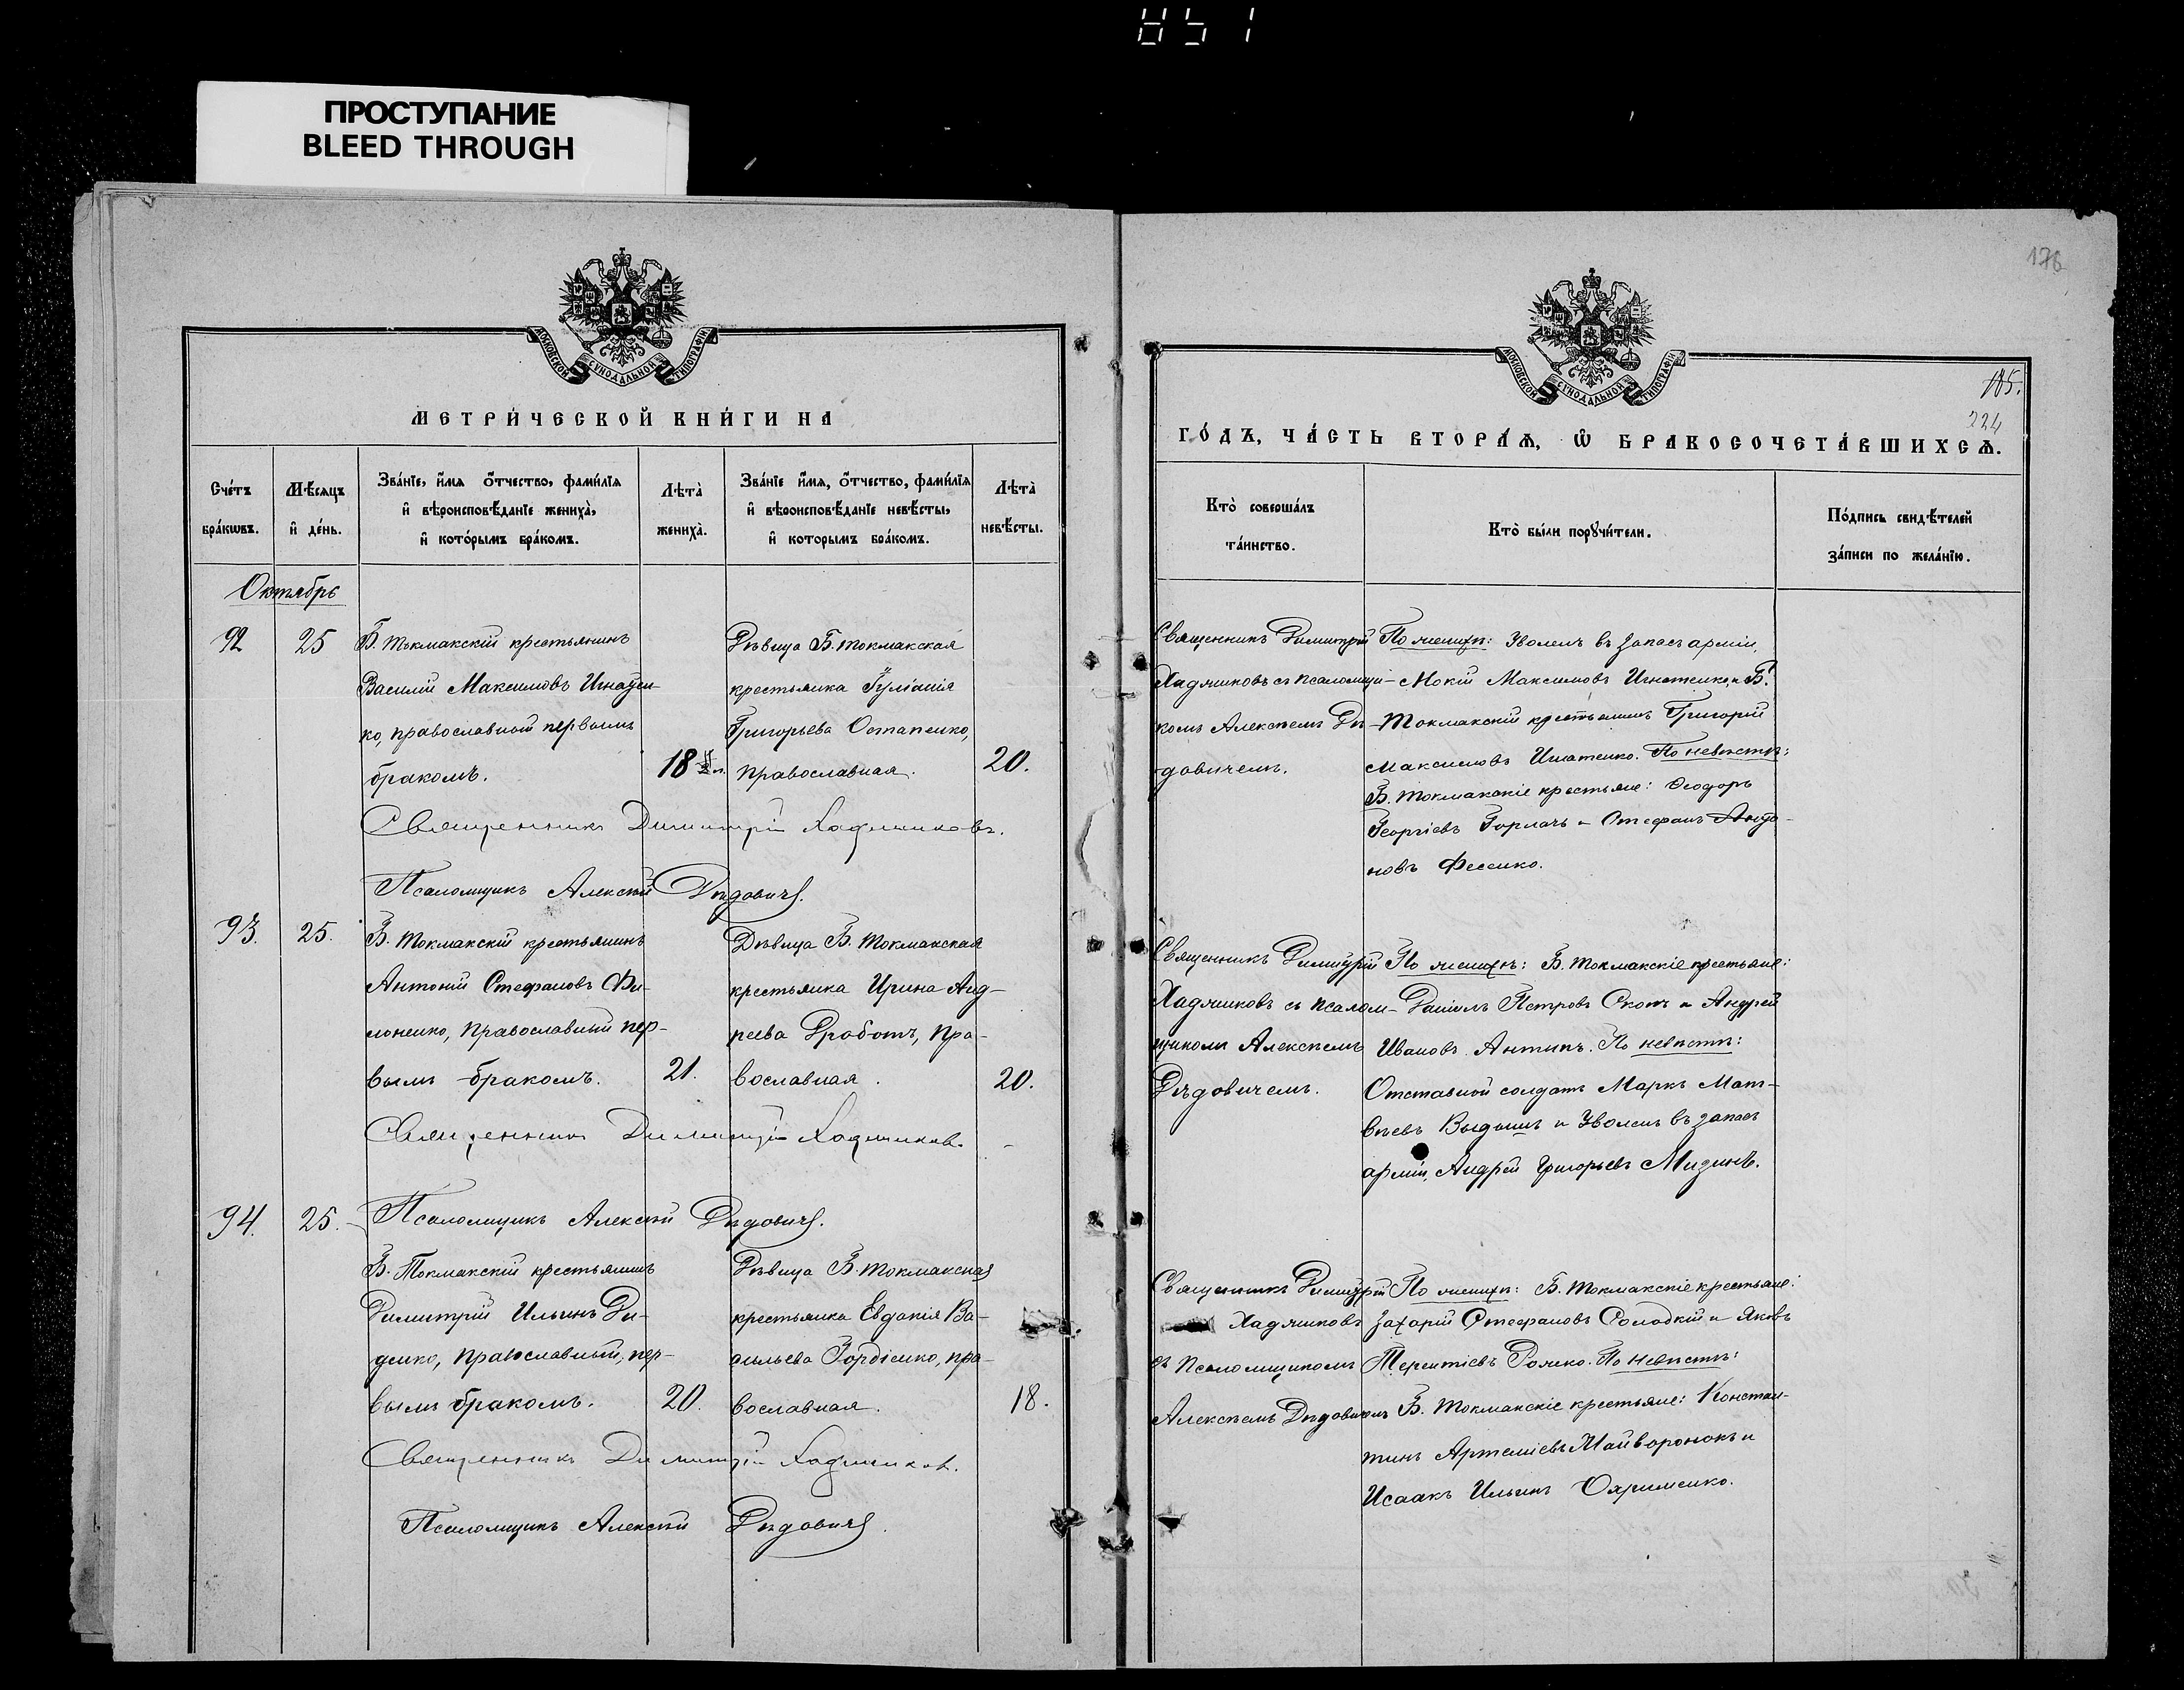 851
ПРОСТУПАНИЕ
BLEED THROUGH
178
МОСКОВСКОЙ СѴНОДАЛЬНОЙ ТИПОГРАФІИ
МЕТРИ́ЧЕСКОЙ КНИ́ГИ НА
Сче́тъ бра́кѡвъ.
Мѣ́сяцъ и҆ де́нь.
Зва́нїе, и҆́мя ѻ҆́тчество, фами́лїя
и҆ вѣроисповѣ́данїе жениха̀,
и҆ кото́рымъ бра́комъ.
Лѣта̀ жениха̀.
Зва́нїе и҆́мя, ѻ҆́тчество, фами́лїя
и҆ вѣроисповѣ́данїе невѣ́сты,
и҆ которымъ бра́комъ.
Лѣта̀ невѣ́сты.
Октябрь
92 25
Б. Токмакскій крестьянинъ
Василій Максимовъ Игнатен-
ко, православный первымъ
бракомъ.
18
Дѣвица Б. Токмакская
крестьянка Іуліанія
Григорьева Остапенко,
православная.
20.
Священникъ Димитрій Хаджиновъ.
Псаломщикъ Алексѣй Дѣдовичъ.
93. 25.
Б. Токмакскій крестьянинъ
Антоній Стефановъ Фи-
лоненко, православный пер-
вымъ бракомъ.
21.
Дѣвица Б. Токмакская
крестьянка Ирина Анд-
реева Дроботъ, пра-
вославная.
20.
Священникъ Димитрій Хаджиновъ.
94. 25.
Псаломщикъ Алексѣй Дѣдовичъ.
Б. Токмакскій крестьянинъ
Димитрій Ильинъ Ди-
денко, православный, пер-
вымъ бракомъ.
20.
Дѣвица Б. Токмакская
крестьянка Евдокія Ва-
сильева Гордіенко, пра-
вославная.
18.
Священникъ Димитрій Хаджиновъ.
Псаломщикъ Алексѣй Дѣдовичъ.
МОСКОВСКОЙ СѴНОДАЛЬНОЙ ТИПОГРАФІИ
185.
224
ГО́ДЪ, ЧА́СТЬ ВТОРА́Ѧ, Ѡ҆ БРАКОСОЧЕТА́ВШИХСѦ.
Кто̀ соверша́лъ
та́инство.
Кто̀ бы́ли порꙋчи́тели.
По́дпись свидѣ́телей
за́писи по жела́нїю.
Священникъ Димитрій
Хаджиновъ съ псаломщи-
комъ Алексѣемъ Дѣ-
довичемъ.
По женихѣ: Уволен. въ запасъ арміи,
Мокій Максимовъ Игнатенко, и Б.
Токмакскій крестьянинъ Григорій
Максимовъ Игнатенко. По невѣстѣ:
Б. Токмакскіе крестьяне: Ѳеодоръ
Георгіевъ Горлачъ и Стефанъ
новъ Фесенко.
Священникъ Димитрій
Хаджиновъ съ псалом-
щикомъ Алексѣемъ
Дѣдовичемъ.
По женихѣ: Б. Токмакскіе крестьяне:
Даніилъ Петровъ Скотъ и Андрей
Ивановъ Антипъ. По невѣстѣ:
Отставной солдатъ Маркъ Мат-
вѣевъ Выдышъ и Уволен. въ запасъ
арміи, Андрей Григорьевъ Мизинъ.
Священникъ Димитрій
Хаджиновъ
съ Псаломщикомъ
Алексѣемъ Дѣдовичемъ
По женихѣ: Б. Токмакскіе крестьяне:
Захарій Стефановъ Солодкій и Яковъ
Терентіевъ Рожко. По невѣстѣ:
Б. Токмакскіе крестьяне: Констан-
тинъ Артеміевъ Майворонокъ и
Исаакъ Ильинъ Охрименко.